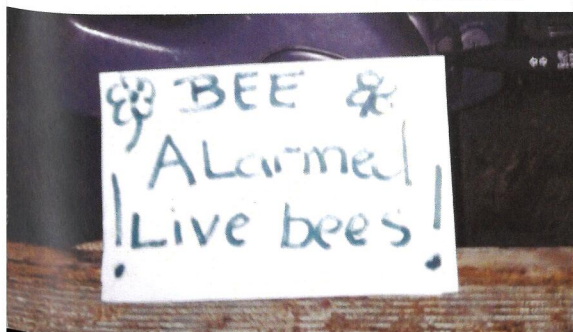 BEE
ALarmed
!Live bees!